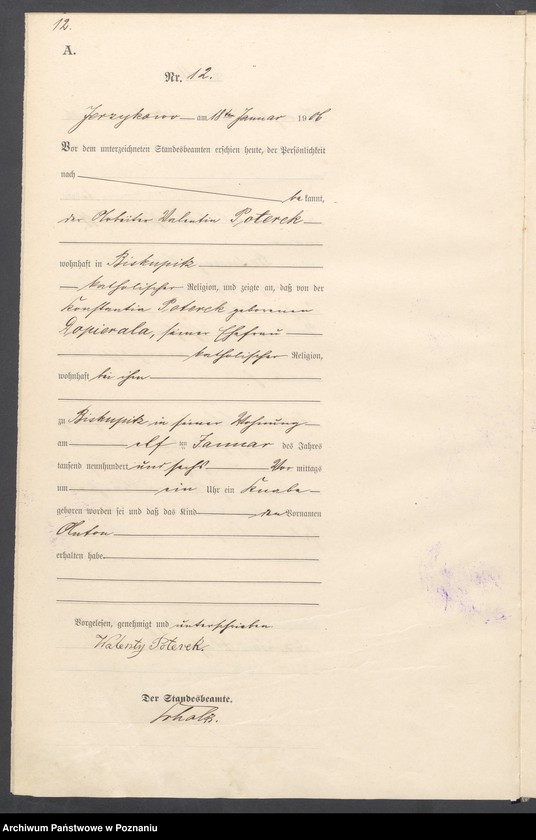 12.
A.
Nr. 12.
Jerzykowo am 18ten Januar 1906
Vor dem unterzeichneten Standesbeamten erschien heute, der Persönlichkeit
nach
bekannt,
der Arbeiter Valentin Poterek
wohnhaft in Biskupik
katholischer Religion, und zeigte an, daß von der
Konstantia Poterek geborenen
Lopierala, seiner Ehefrau
katholischer Religion,
wohnhaft bei ihm
zu Biskupik in seiner Wohnung
am elf ten Januar des Jahres
tausend neunhundert und sechs Vor mittags
um ein Uhr ein Knabe
geboren worden sei und daß das Kind den Vornamen
Anton
erhalten habe.
Vorgelesen, genehmigt und unterschrieben
Walenty Poterek.
Der Standesbeamte.
Archiwum Państwowe w Poznaniu